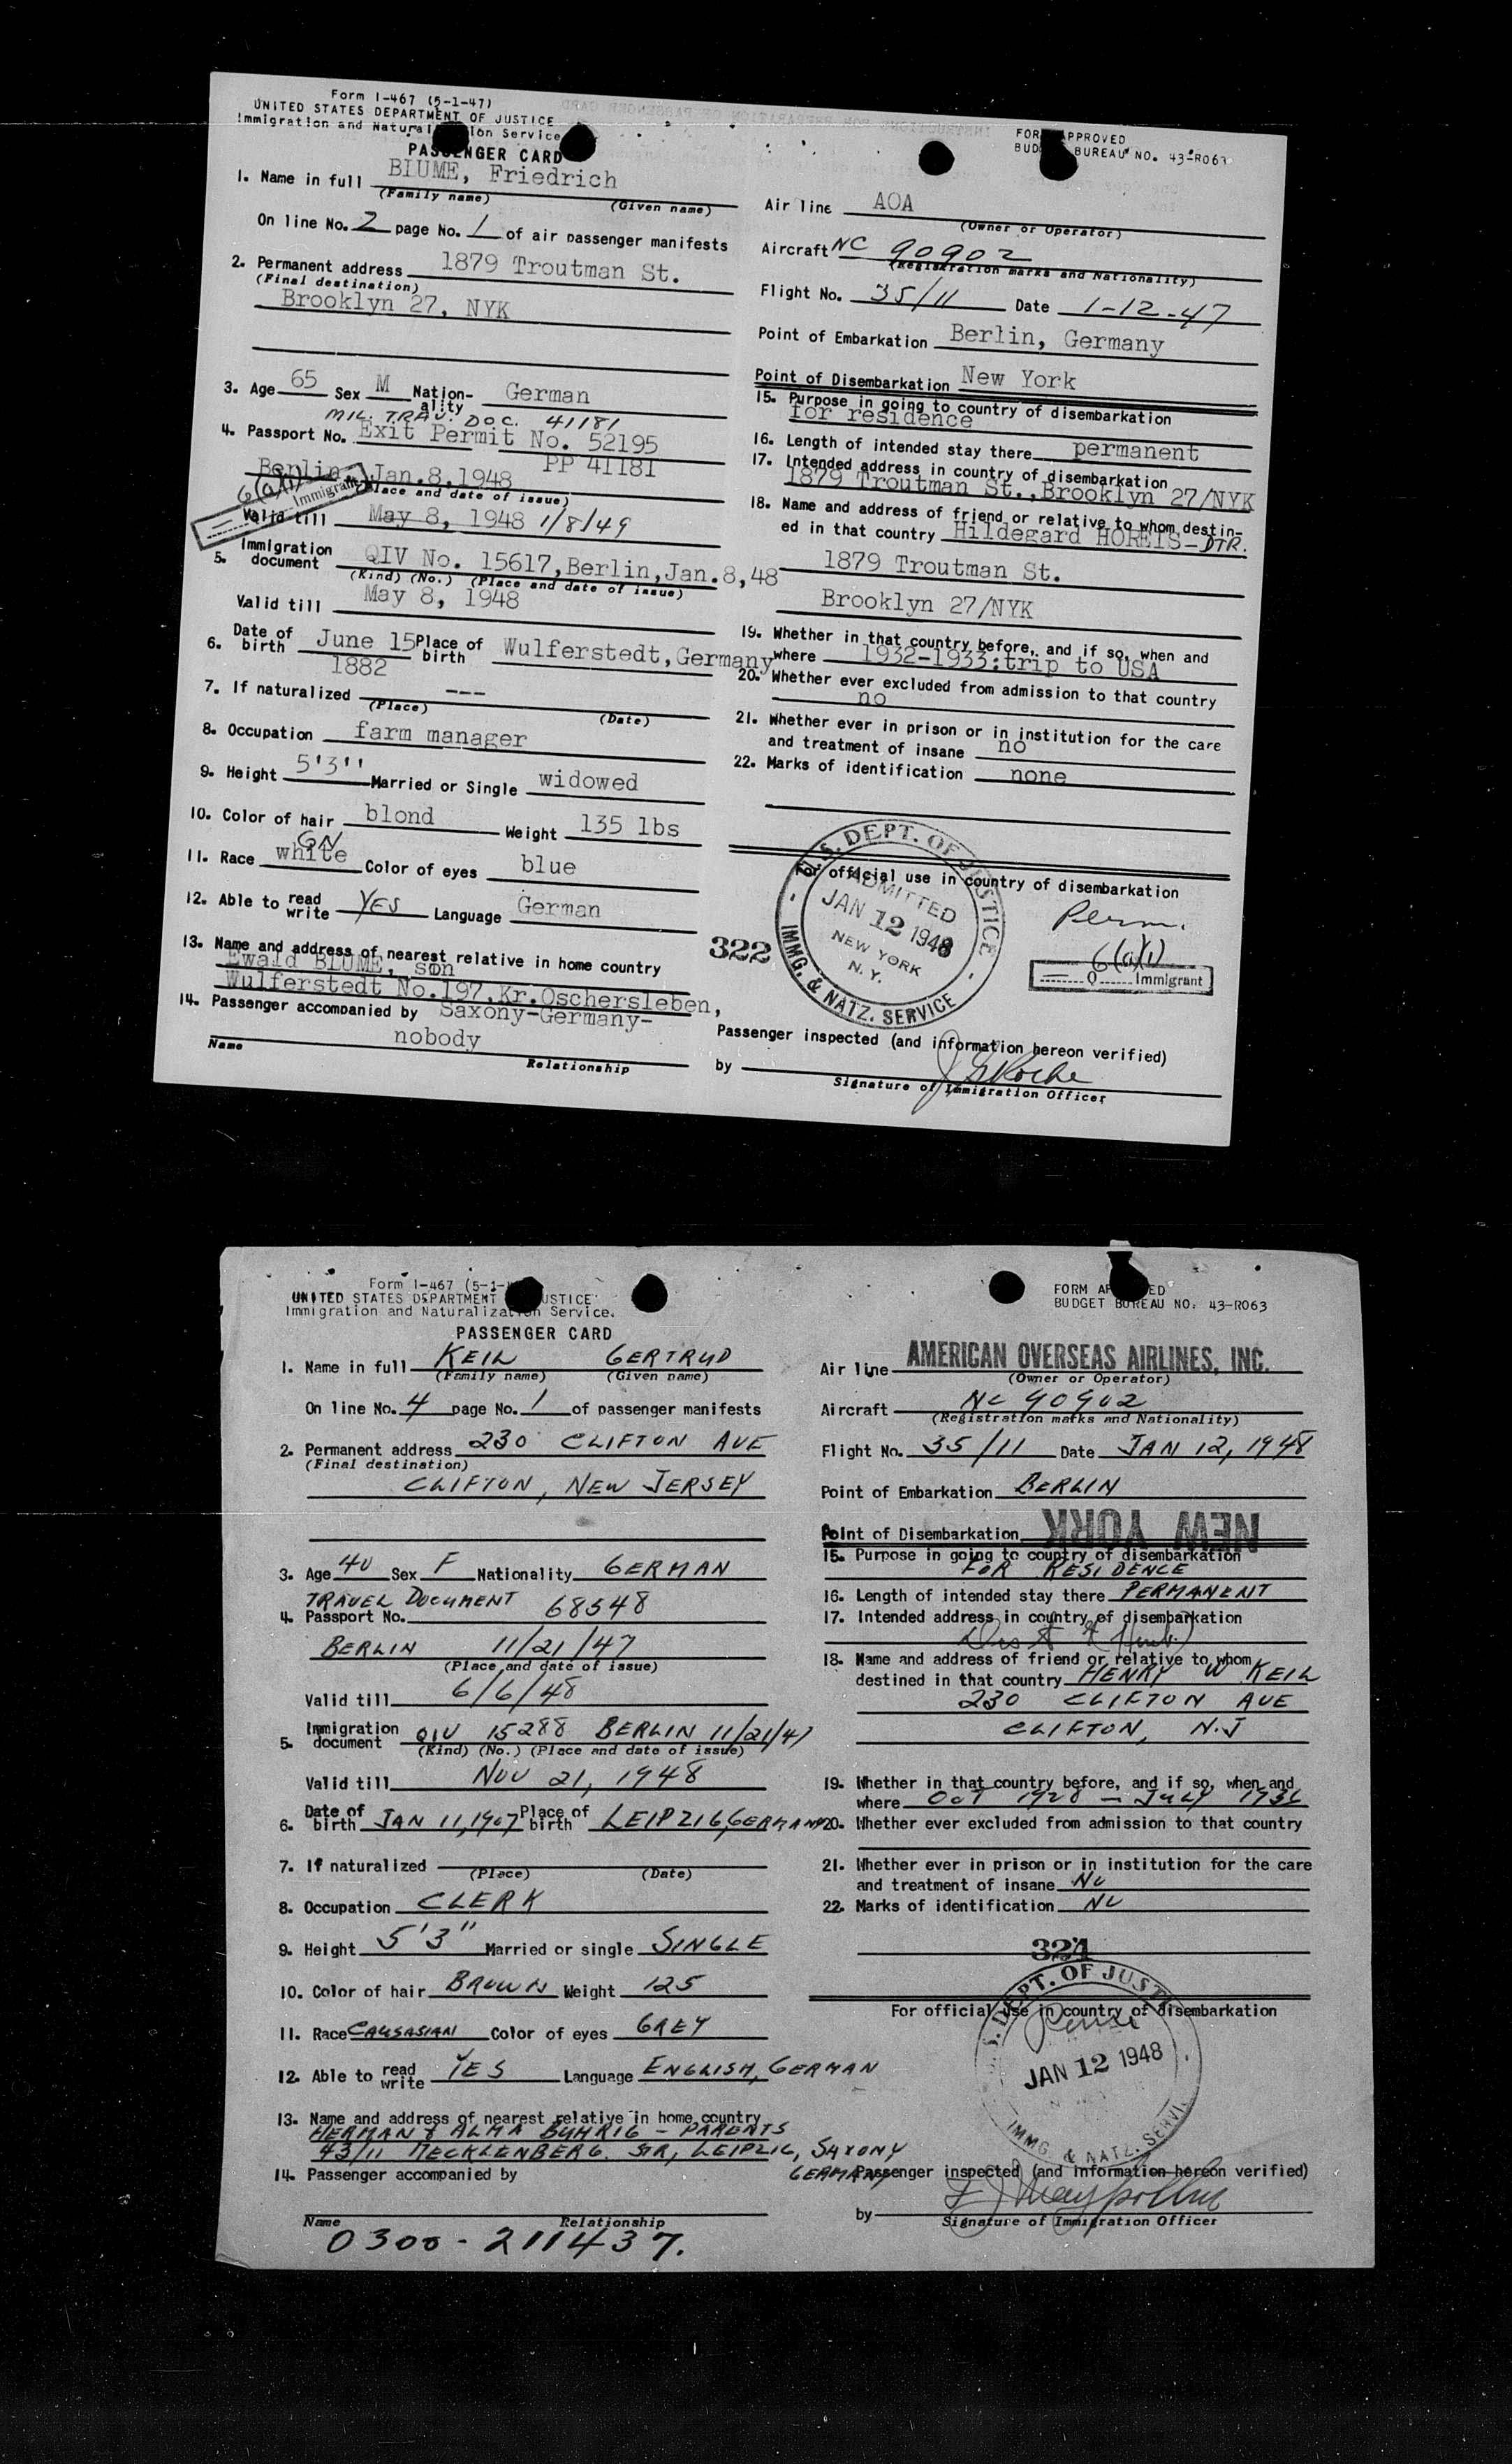 Form I-467 (5-1-47)
UNITED STATES DEPARTMENT OF JUSTICE
Immigration and Natural ion Service
PASSENGER CARD
FOR APPROVED
BUD BUREAU NO. 43-R063
1. Name in full BLUME, Friedrich
(Family name) (Given name)
On line No. 2 page No. 1 of air passenger manifests
2. Permanent address 1879 Troutman St.
(Final destination)
Brooklyn 27, NYK
3. Age 65 Sex M Nation-ality German
MIL. TRAV. DOC. 41181
4. Passport No. Exit Permit No. 52195
PP 41181
Berlin, Jan.8,1948
(Place and date of issue)
6(a)(1)
Immigrant
Valid till May 8, 1948 1/8/49
5. Immigration document QIV No. 15617, Berlin, Jan.8,48
(Kind) (No.) (Place and date of issue)
Valid till May 8, 1948
6. Date of birth June 15 1882 Place of birth Wulferstedt, Germany
7. If naturalized ---
(Place) (Date)
8. Occupation farm manager
9. Height 5'3'' Married or Single widowed
10. Color of hair blond Weight 135 lbs
GN
11. Race white Color of eyes blue
12. Able to read write YES Language German
13. Name and address of nearest relative in home country
Ewald BLUME, son
Wulferstedt No.197, Kr.Oschersleben,
14. Passenger accompanied by Saxony-Germany-
nobody
Name Relationship
Air line AOA
(Owner or Operator)
Aircraft NC 90902
(Registration marks and Nationality)
Flight No. 35/11 Date 1-12-47
Point of Embarkation Berlin, Germany
Point of Disembarkation New York
15. Purpose in going to country of disembarkation
for residence
16. Length of intended stay there permanent
17. Intended address in country of disembarkation
1879 Troutman St., Brooklyn 27/NYK
18. Name and address of friend or relative to whom destin-
ed in that country Hildegard HOREIS - DTR.
1879 Troutman St.
Brooklyn 27/NYK
19. Whether in that country before, and if so, when and
where 1932-1933: trip to USA
20. Whether ever excluded from admission to that country
no
21. Whether ever in prison or in institution for the care
and treatment of insane no
22. Marks of identification none
For official use in country of disembarkation
322
U.S. DEPT. OF JUSTICE
ADMITTED
JAN 12 1948
NEW YORK
N. Y.
IMMG. & NATZ. SERVICE
Perm.
6(a)(1)
Q Immigrant
Passenger inspected (and information hereon verified)
by
Signature of Immigration Officer
Form I-467 (5-1-
UNITED STATES DEPARTMENT USTICE
Immigration and Naturalization Service.
PASSENGER CARD
FORM AP ED
BUDGET BUREAU NO. 43-R063
1. Name in full KEIL GERTRUD
(Family name) (Given name)
On line No. 4 page No. 1 of passenger manifests
2. Permanent address 230 CLIFTON AVE
(Final destination)
CLIFTON, NEW JERSEY
3. Age 40 Sex F Nationality GERMAN
TRAVEL DOCUMENT 68548
4. Passport No.
BERLIN 11/21/47
(Place and date of issue)
Valid till 6/6/48
5. Immigration document QIV 15288 BERLIN 11/21/47
(Kind) (No.) (Place and date of issue)
Valid till NOV 21, 1948
6. Date of birth JAN 11, 1907 Place of birth LEIPZIG, GERMANY
7. If naturalized
(Place) (Date)
8. Occupation CLERK
9. Height 5'3" Married or single SINGLE
10. Color of hair BROWN Weight 125
11. Race CAUSASIAN Color of eyes GREY
12. Able to read write YES Language ENGLISH, GERMAN
13. Name and address of nearest relative in home country
HERMAN & ALMA BUHRIG - PARENTS
43/11 MECKLENBERG. STR, LEIPZIG, SAXONY
GERMANY
14. Passenger accompanied by
Name Relationship
0300-211437.
Air line AMERICAN OVERSEAS AIRLINES, INC.
(Owner or Operator)
Aircraft NC 90902
(Registration marks and Nationality)
Flight No. 35/11 Date JAN 12, 1948
Point of Embarkation BERLIN
Point of Disembarkation NEW YORK
15. Purpose in going to country of disembarkation
FOR RESIDENCE
16. Length of intended stay there PERMANENT
17. Intended address in country of disembarkation
18. Name and address of friend or relative to whom
destined in that country HENRY W KEIL
230 CLIFTON AVE
CLIFTON, N.J
19. Whether in that country before, and if so, when and
where OCT 1928 - JULY 1936
20. Whether ever excluded from admission to that country
21. Whether ever in prison or in institution for the care
and treatment of insane NO
22. Marks of identification NO
324
For official use in country of disembarkation
S. DEPT. OF JUST
JAN 12 1948
IMMG. & NATZ. SERVI
Passenger inspected (and information hereon verified)
by
Signature of Immigration Officer